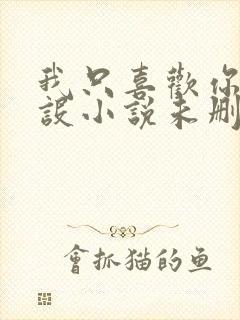 我只喜歡你
設小說未刪
會抓猫的鱼